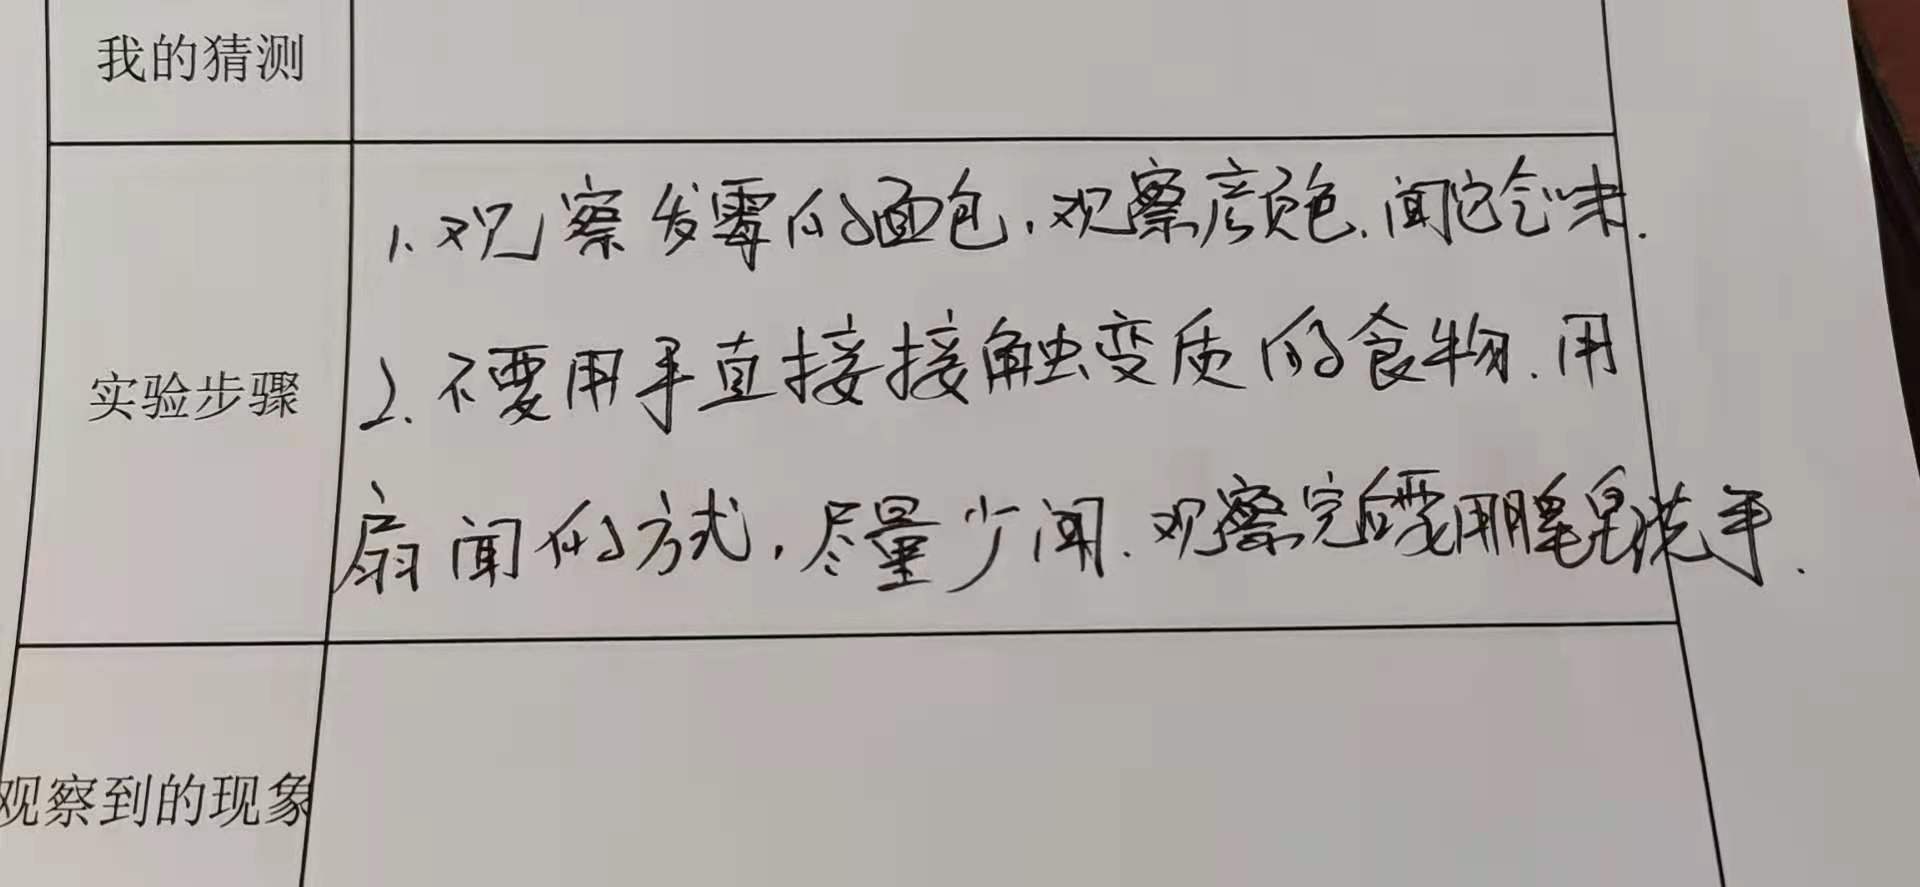 我的猜测
实验步骤
1.观察发霉的面包,观察颜色.闻它气味.
2.不要用手直接接触变质的食物.用
扇闻的方式,尽量少闻.观察完后要用肥皂洗手.
观察到的现象